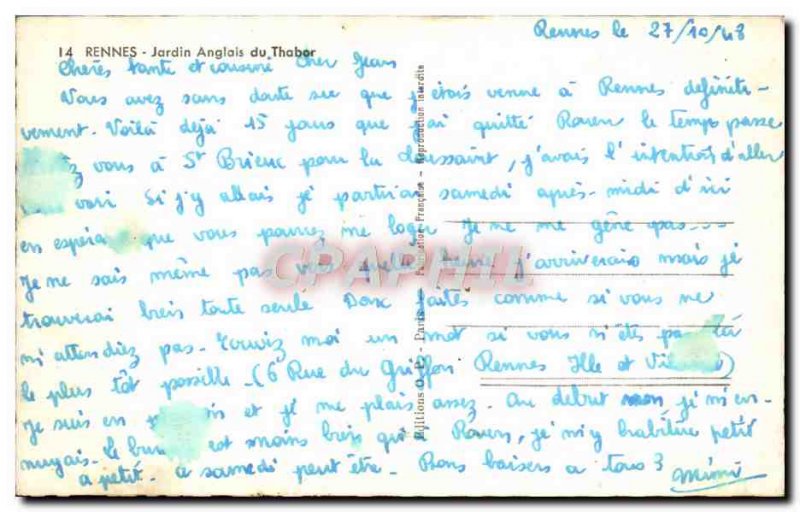 Rennes le 27/10/48
14 RENNES - Jardin Anglais du Thabor
Chères tante et cousine Cher Jean
Vous avez sans doute su que j'étais venue à Rennes définiti-
vement. Voilà déjà 15 jours que j'ai quitté Rouen le temps passe
vous à St Brieuc pour la Toussaint, j'avais l'intention d'aller
voir Si j'y allais je partirai samedi après-midi d'ici
en espérant que vous pourrez me loger je ne me gêne pas...
Je ne sais même pas vers quelle heure j'arriverais mais je
trouverai bien toute seule Donc faites comme si vous ne
m'attendiez pas. Écrivez moi un mot si vous n'êtes pas là
le plus tôt possible - (6 Rue du Griffon Rennes Ille et Vilaine)
Je suis en et je me plais assez. Au début mon je m'en-
nuyais. le bureau est moins bien qu'à Rouen, je m'y habitue petit
à petit. à samedi peut être. Bons baisers à tous 3
Mimi
Editions O. P. - Paris - Fabrication Française - Reproduction interdite
CPAPHIL